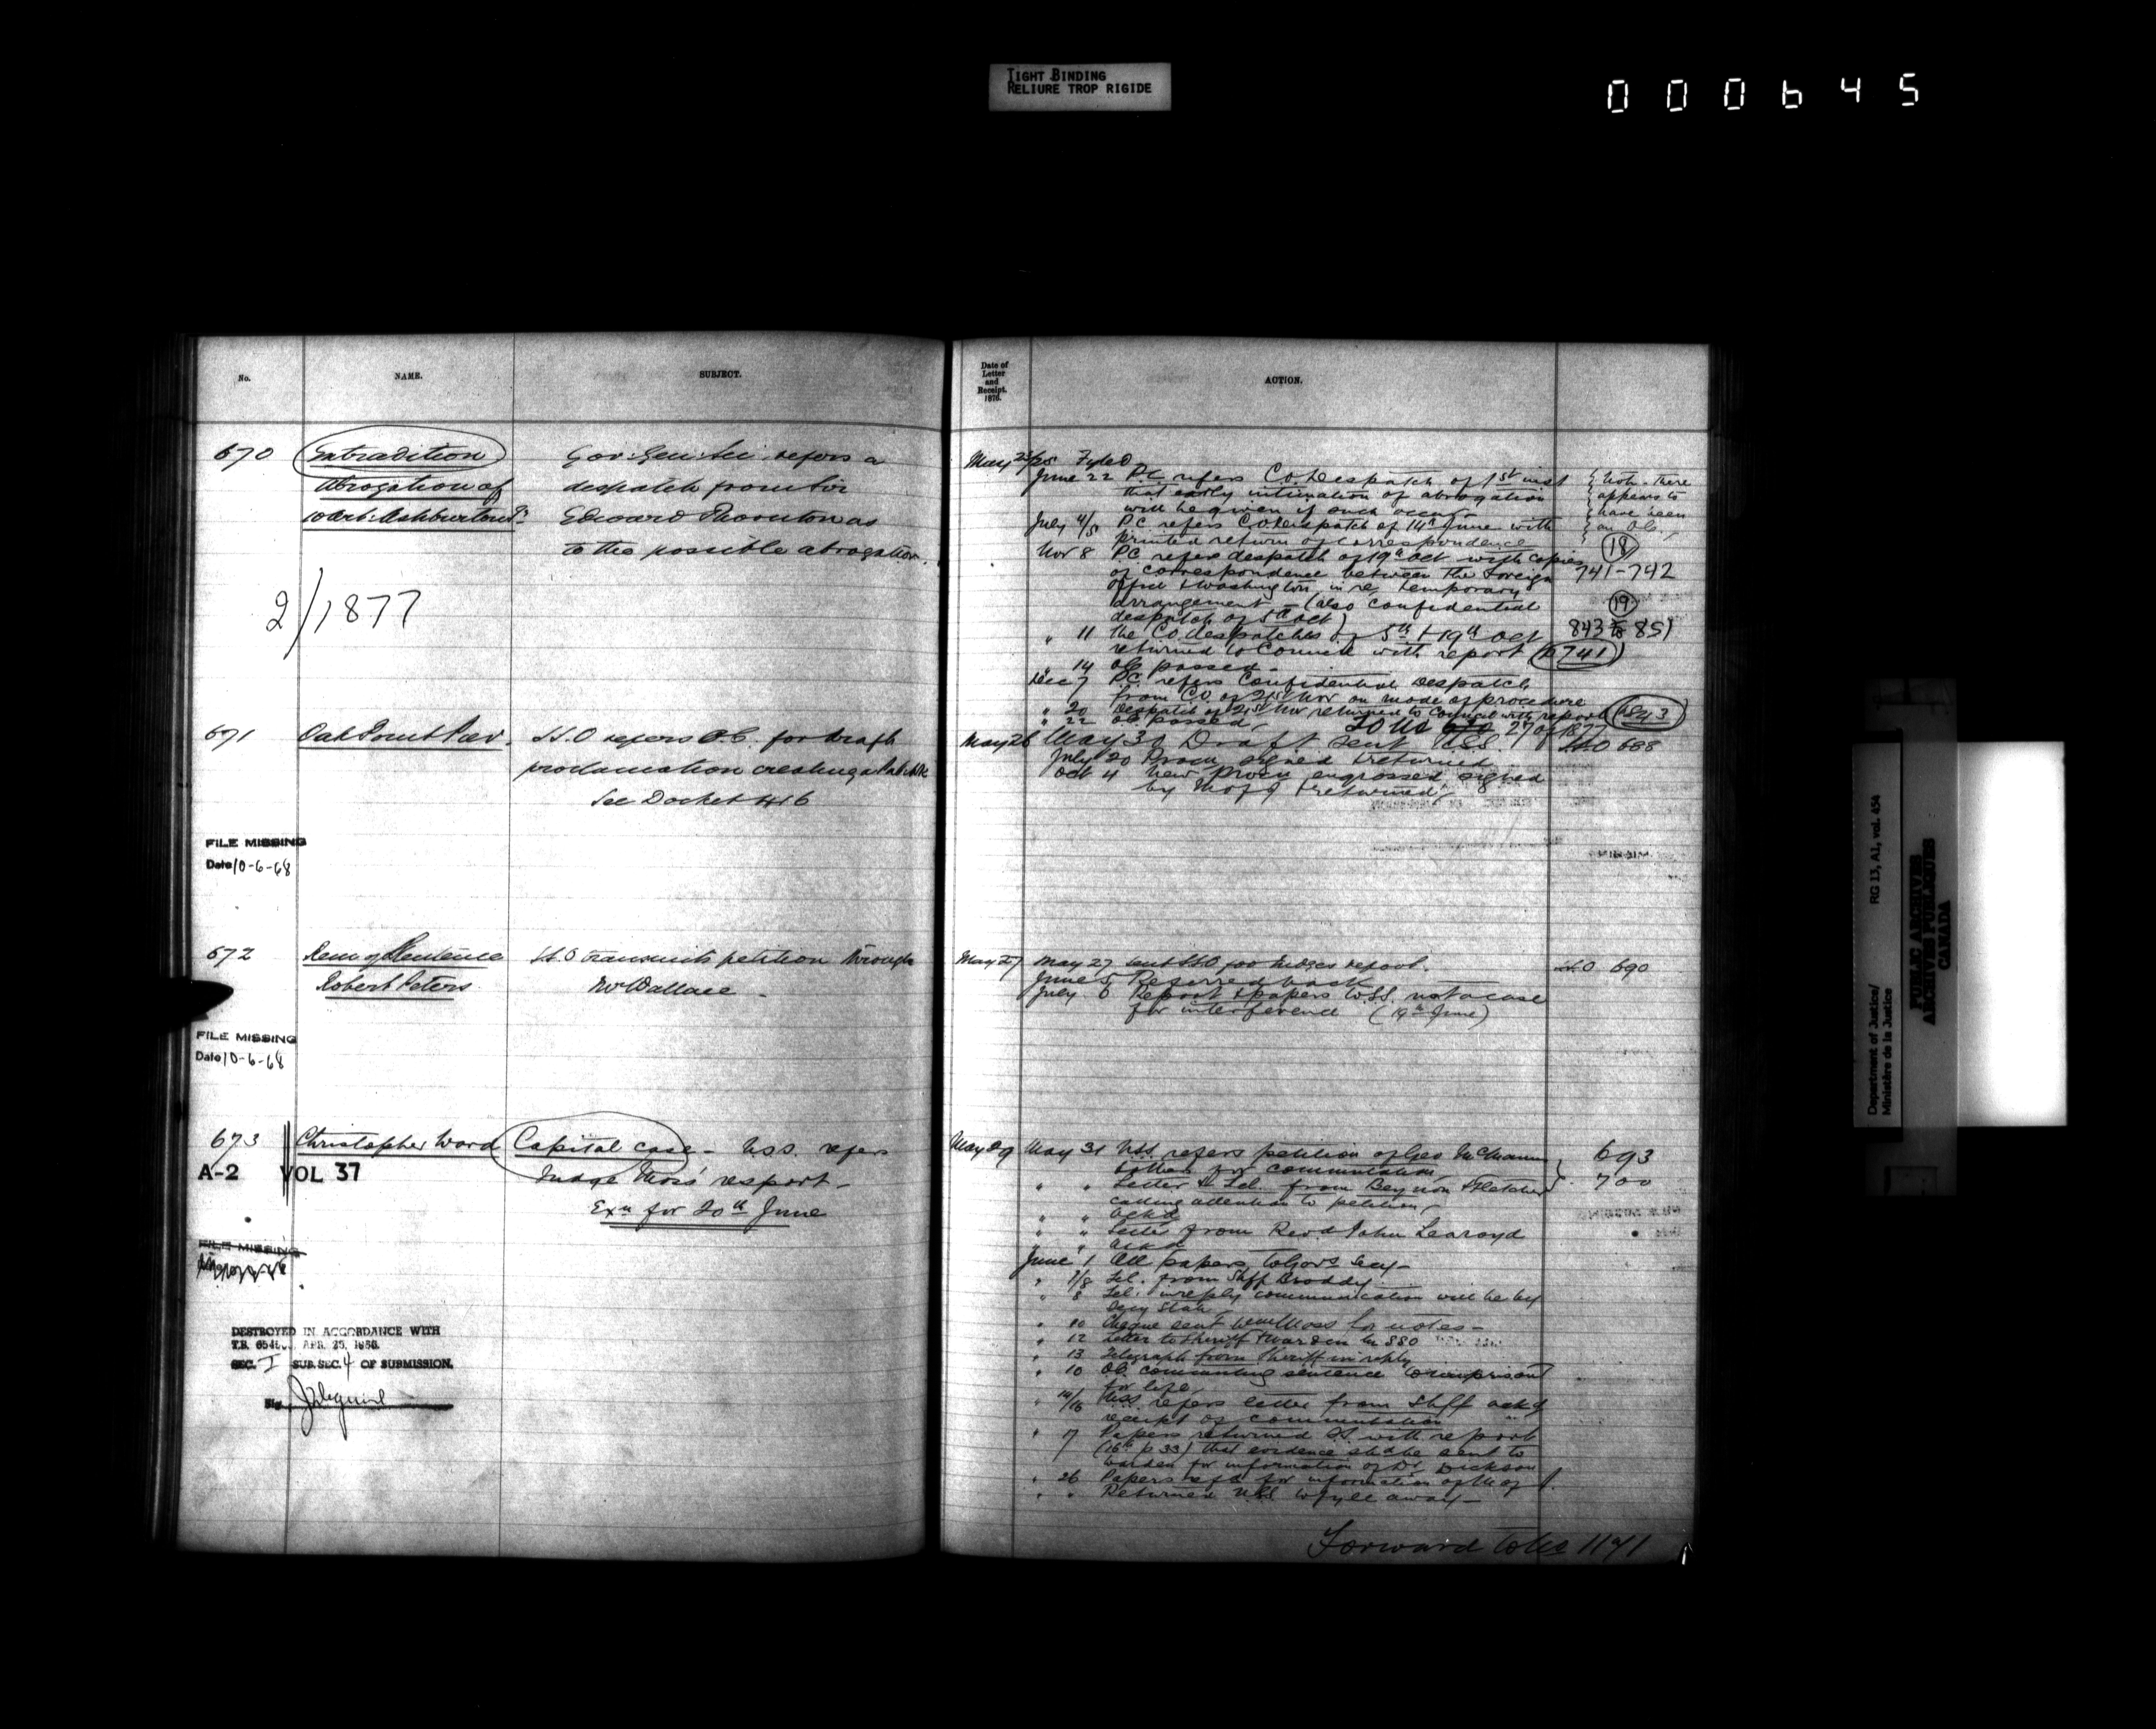 TIGHT BINDING
RELIURE TROP RIGIDE
000645
No.
NAME.
SUBJECT.
670
Extradition
Abrogation of
10 Art: Ashburton Ty
Gov: Gen: Sec: refers a
despatch from Sir
Edward Thornton as
to the possible abrogation.
2/1877
671
Oak Point
H.O refers O.C. for draft
proclamation creating a
See Docket 416
FILE MISSING
Date 10-6-68
672
Rem of Sentence
Robert Peters
H.O transmits petition through
Mr Wallace -
FILE MISSING
Date 10-6-68
673
Christopher Ward
Capital case - U.S.S. refers
Judge Moss' report -
Exn for 20th June
A-2 VOL 37
FILE MISSING
DESTROYED IN ACCORDANCE WITH
T.B. APR. 25,
SEC. I SUB.SEC. 4 OF SUBMISSION.
Date of
Letter
and
Receipt.
1876.
ACTION.
May 25/25 Fyled
June 22 P.C. refers C.O. Despatch of 1st inst
that early intimation of abrogation
will be given if such occurs -
July 4/5 P.C refers C.O. despatch of 14th June with
printed return of correspondence
Nov 8 P.C refers despatch of 19th Oct with copies
of correspondence between the Foreign
Office & Washington in re temporary
arrangement - (also confidential
despatch of 5th Oct)
" 11 the C.O. despatches of 5th & 19th Oct
returned to Council with report
" 14 O.C. passed -
Dec 7 P.C. refers Confidential Despatch
from C.O. of 21st Nov on mode of procedure
" 20 Despatch of 21st Nov returned to Council with report
" 22 O.C. passed
To No 27 of 1877
{ Note - There
{ appears to
{ have been
{ an O.C.
18
741-742
19
843 to 851
p 741
p 843
May 26 May 31 Draft sent U.S.S.
July 20 Procn signed & returned
Oct 4 New Procn engrossed signed
by M of J & returned -
H.O 688
May 27 May 27 sent H.O for Judges report.
June 5 Referred back
July 6 Report & papers to S.S. not a case
for interference (19th June)
H.O 690
May 29 May 31 U.S.S. refers petition of Geo McManus
& others for commutation
" " Letter & Tel. from Beynon Fletcher
calling attention to petition
" " ackd
" " Letter from Revd John Learoyd
" " ackd
June 1 All papers to Govs Secy -
" 7/8 Tel. from Shff Broddy
" 8 Tel. in reply communication will be by
Secy State
" 10 Cheque sent Moss for notes -
" 12 Letter to Sheriff & Warden 880
" 13 Telegraph from Sheriff in reply
" 10 O.C. commuting sentence to imprisont
for life
" 14/16 U.S.S. refers letter from Shff ackg
receipt of commutation
" 17 Papers returned S.S. with report
(16th p 33) that evidence shd be sent to
Warden for information of Dr Dickson
" 26 Papers refd for information of M of J.
" " Returned U.S.S to fyle away -
693
700
Forward to No 1141
Department of Justice/
Ministère de la Justice
RG 13, A1, vol. 454
PUBLIC ARCHIVES
ARCHIVES PUBLIQUES
CANADA